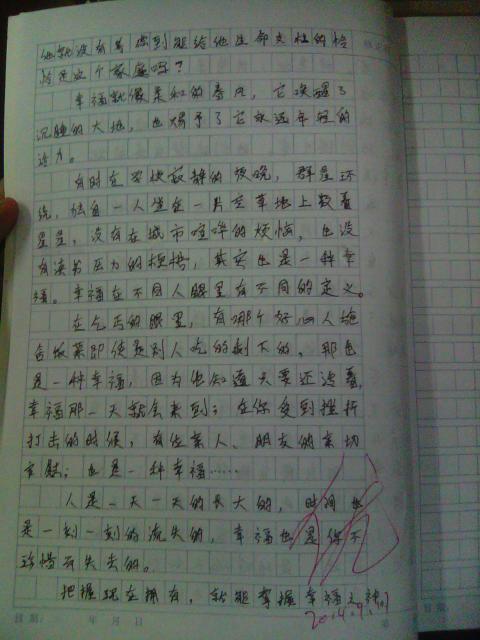 他就没有意识到能给他生命支柱的恰
恰是这个家庭吗？
幸福就像柔和的春风，它唤醒了
沉睡的大地，也赐予了它永远年轻的
活力。
有时在寂静的夜晚，群星环
绕，独自一人坐在一片空草地上数着
星星，没有在城市喧哗的烦恼，也没
有读书压力的捆绑，其实也是一种幸
福。幸福在不同人眼里有不同的定义。
在乞丐的眼里，有哪个好心人施
舍饭菜即使是别人吃的剩下的，那也
是一种幸福，因为他知道天要还活着，
幸福那一天就会来到；在你受到挫折
打击的时候，有位亲人、朋友的亲切
安慰；也是一种幸福……
人是一天一天的长大的，时间也
是一刻一刻的流失的，幸福也是你不
珍惜而失去的。
把握现在拥有，就能掌握幸福
日期： 年 月 日